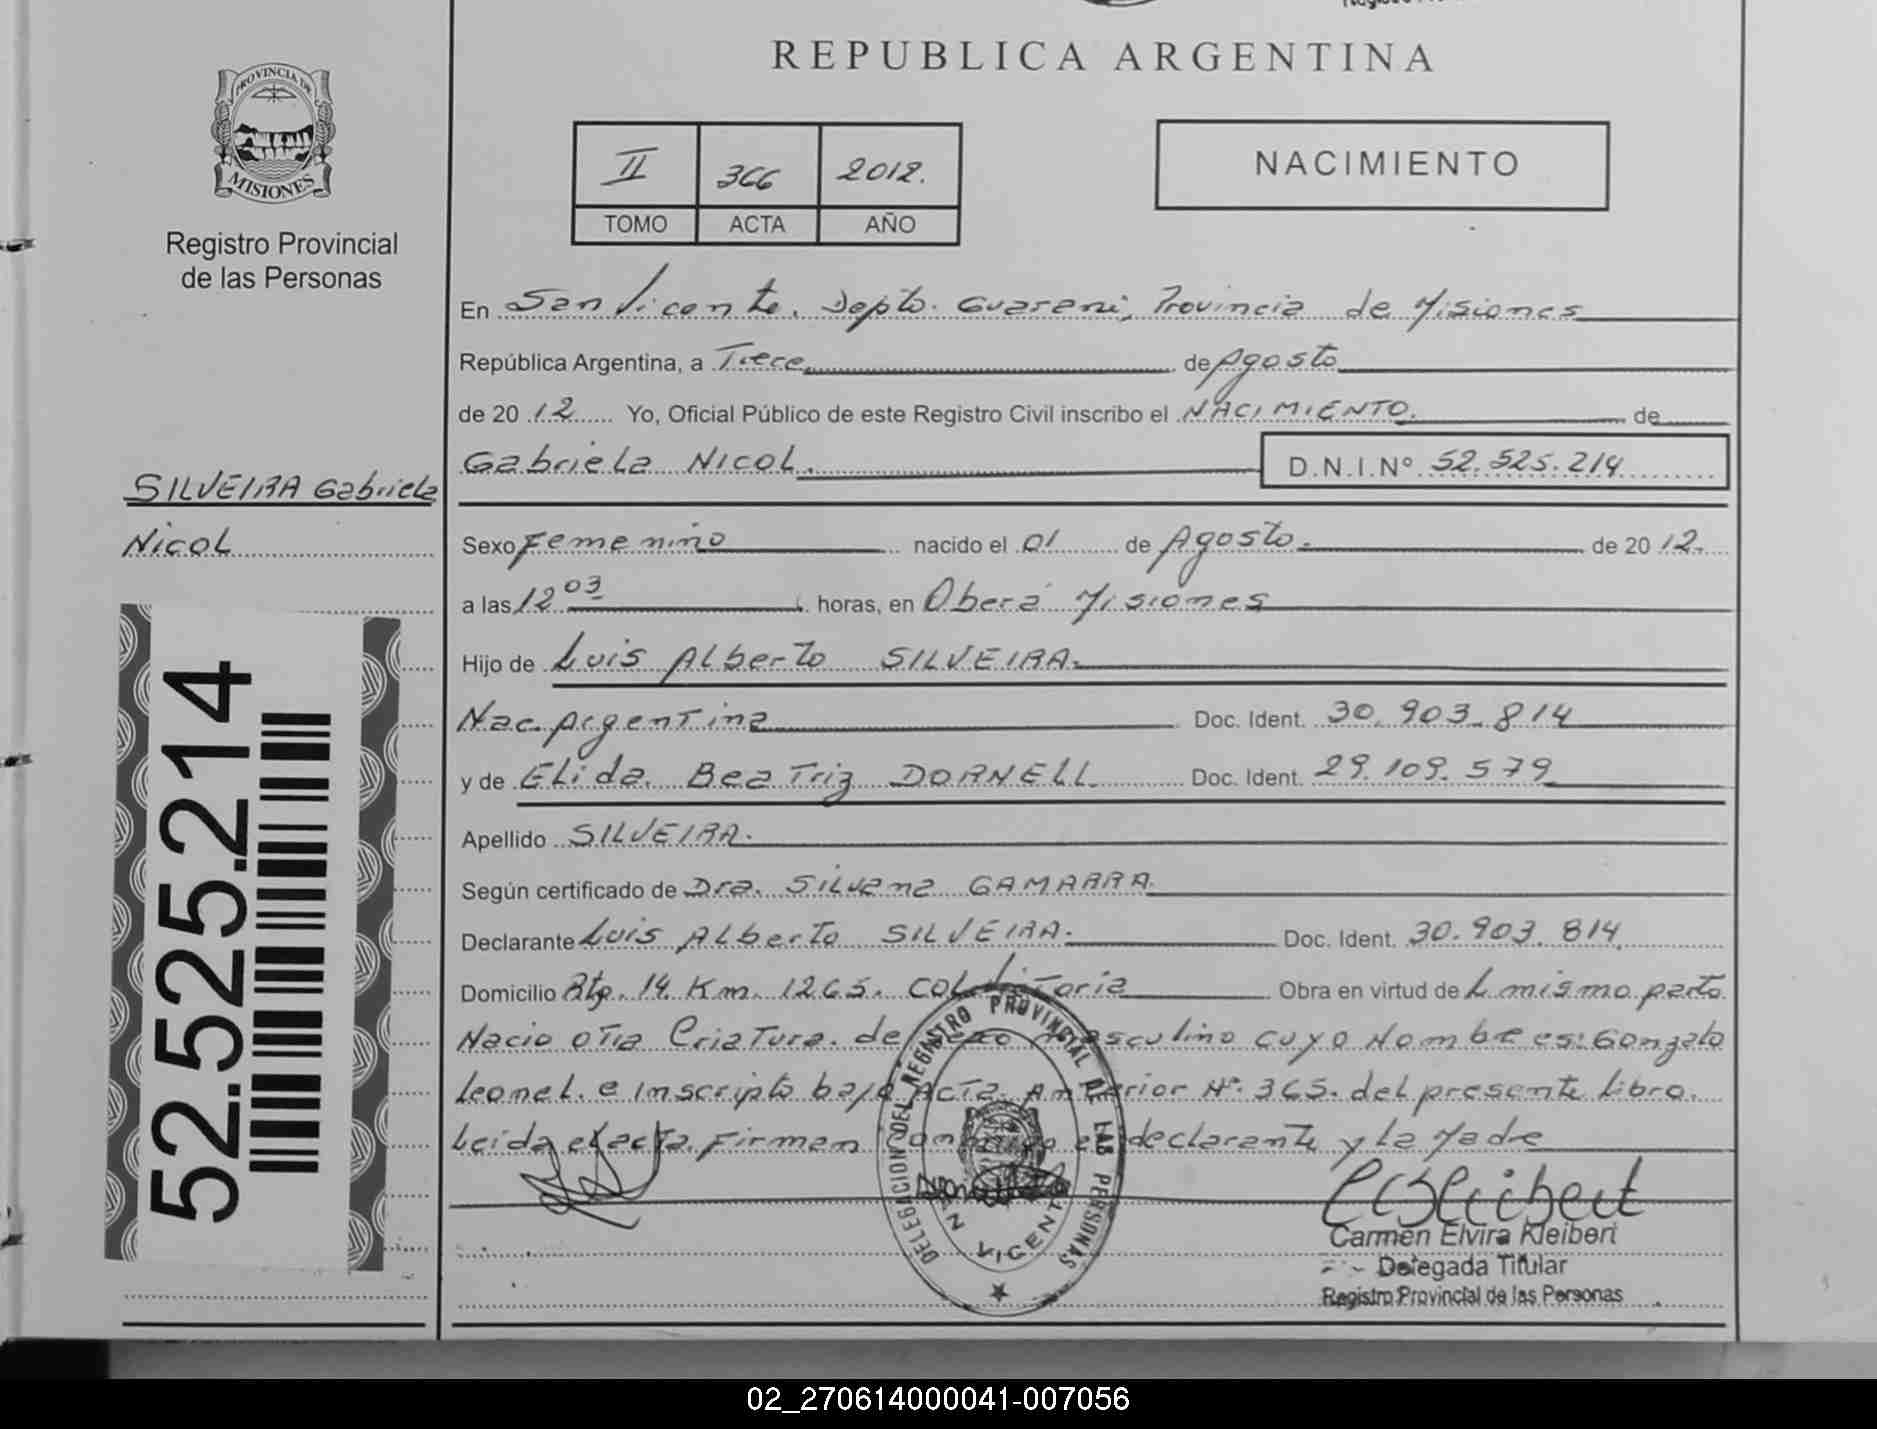 REPUBLICA ARGENTINA
PROVINCIA DE
MISIONES
Registro Provincial
de las Personas
II 366 2012.
TOMO ACTA AÑO
NACIMIENTO
En San Vicente. Depto. Guarani, Provincia de Misiones
República Argentina, a Trece de Agosto
de 20 12 Yo, Oficial Público de este Registro Civil inscribo el NACIMIENTO. de
Gabriela NICOL. D.N.I.Nº 52.525.214
SILVEIRA Gabriela
NicoL
Sexo Femenino nacido el 01 de Agosto. de 20 12.
a las 12 03 horas, en Oberá Misiones
Hijo de Luis Alberto SILVEIRA.
Nac. Argentina Doc. Ident. 30.903.814
y de Elida. Beatriz DORNELL. Doc. Ident. 29.109.579
Apellido SILVEIRA.
Según certificado de Dra. Silvana GAMARRA.
Declarante Luis Alberto SILVEIRA. Doc. Ident. 30.903.814
Domicilio Rta. 14 Km. 1265. COL. Victoria Obra en virtud de L mismo parto
Nacio otra Criatura. de sexo masculino cuyo Nombre es: Gonzalo
Leonel. e Inscripto bajo Acta. Anterior Nº. 365. del presente Libro.
Leida el acta. Firman conmigo el declarante y la Madre
52.525.214
DELEGACION DEL REGISTRO PROVINCIAL DE LAS PERSONAS
SAN VICENTE
Carmen Elvira Kleibert
Delegada Titular
Registro Provincial de las Personas
02_270614000041-007056